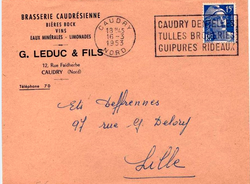 BRASSERIE CAUDRÉSIENNE
BIÈRES BOCK
VINS
EAUX MINÉRALES - LIMONADES
G. LEDUC & FILS
12, Rue Faidherbe
CAUDRY (Nord)
Téléphone 79
CAUDRY
18H15
16-3
1953
NORD
CAUDRY DENTELLES
TULLES BRODERIES
GUIPURES RIDEAUX
15F
Ets Deffrennes
97 rue G. Delory
Lille